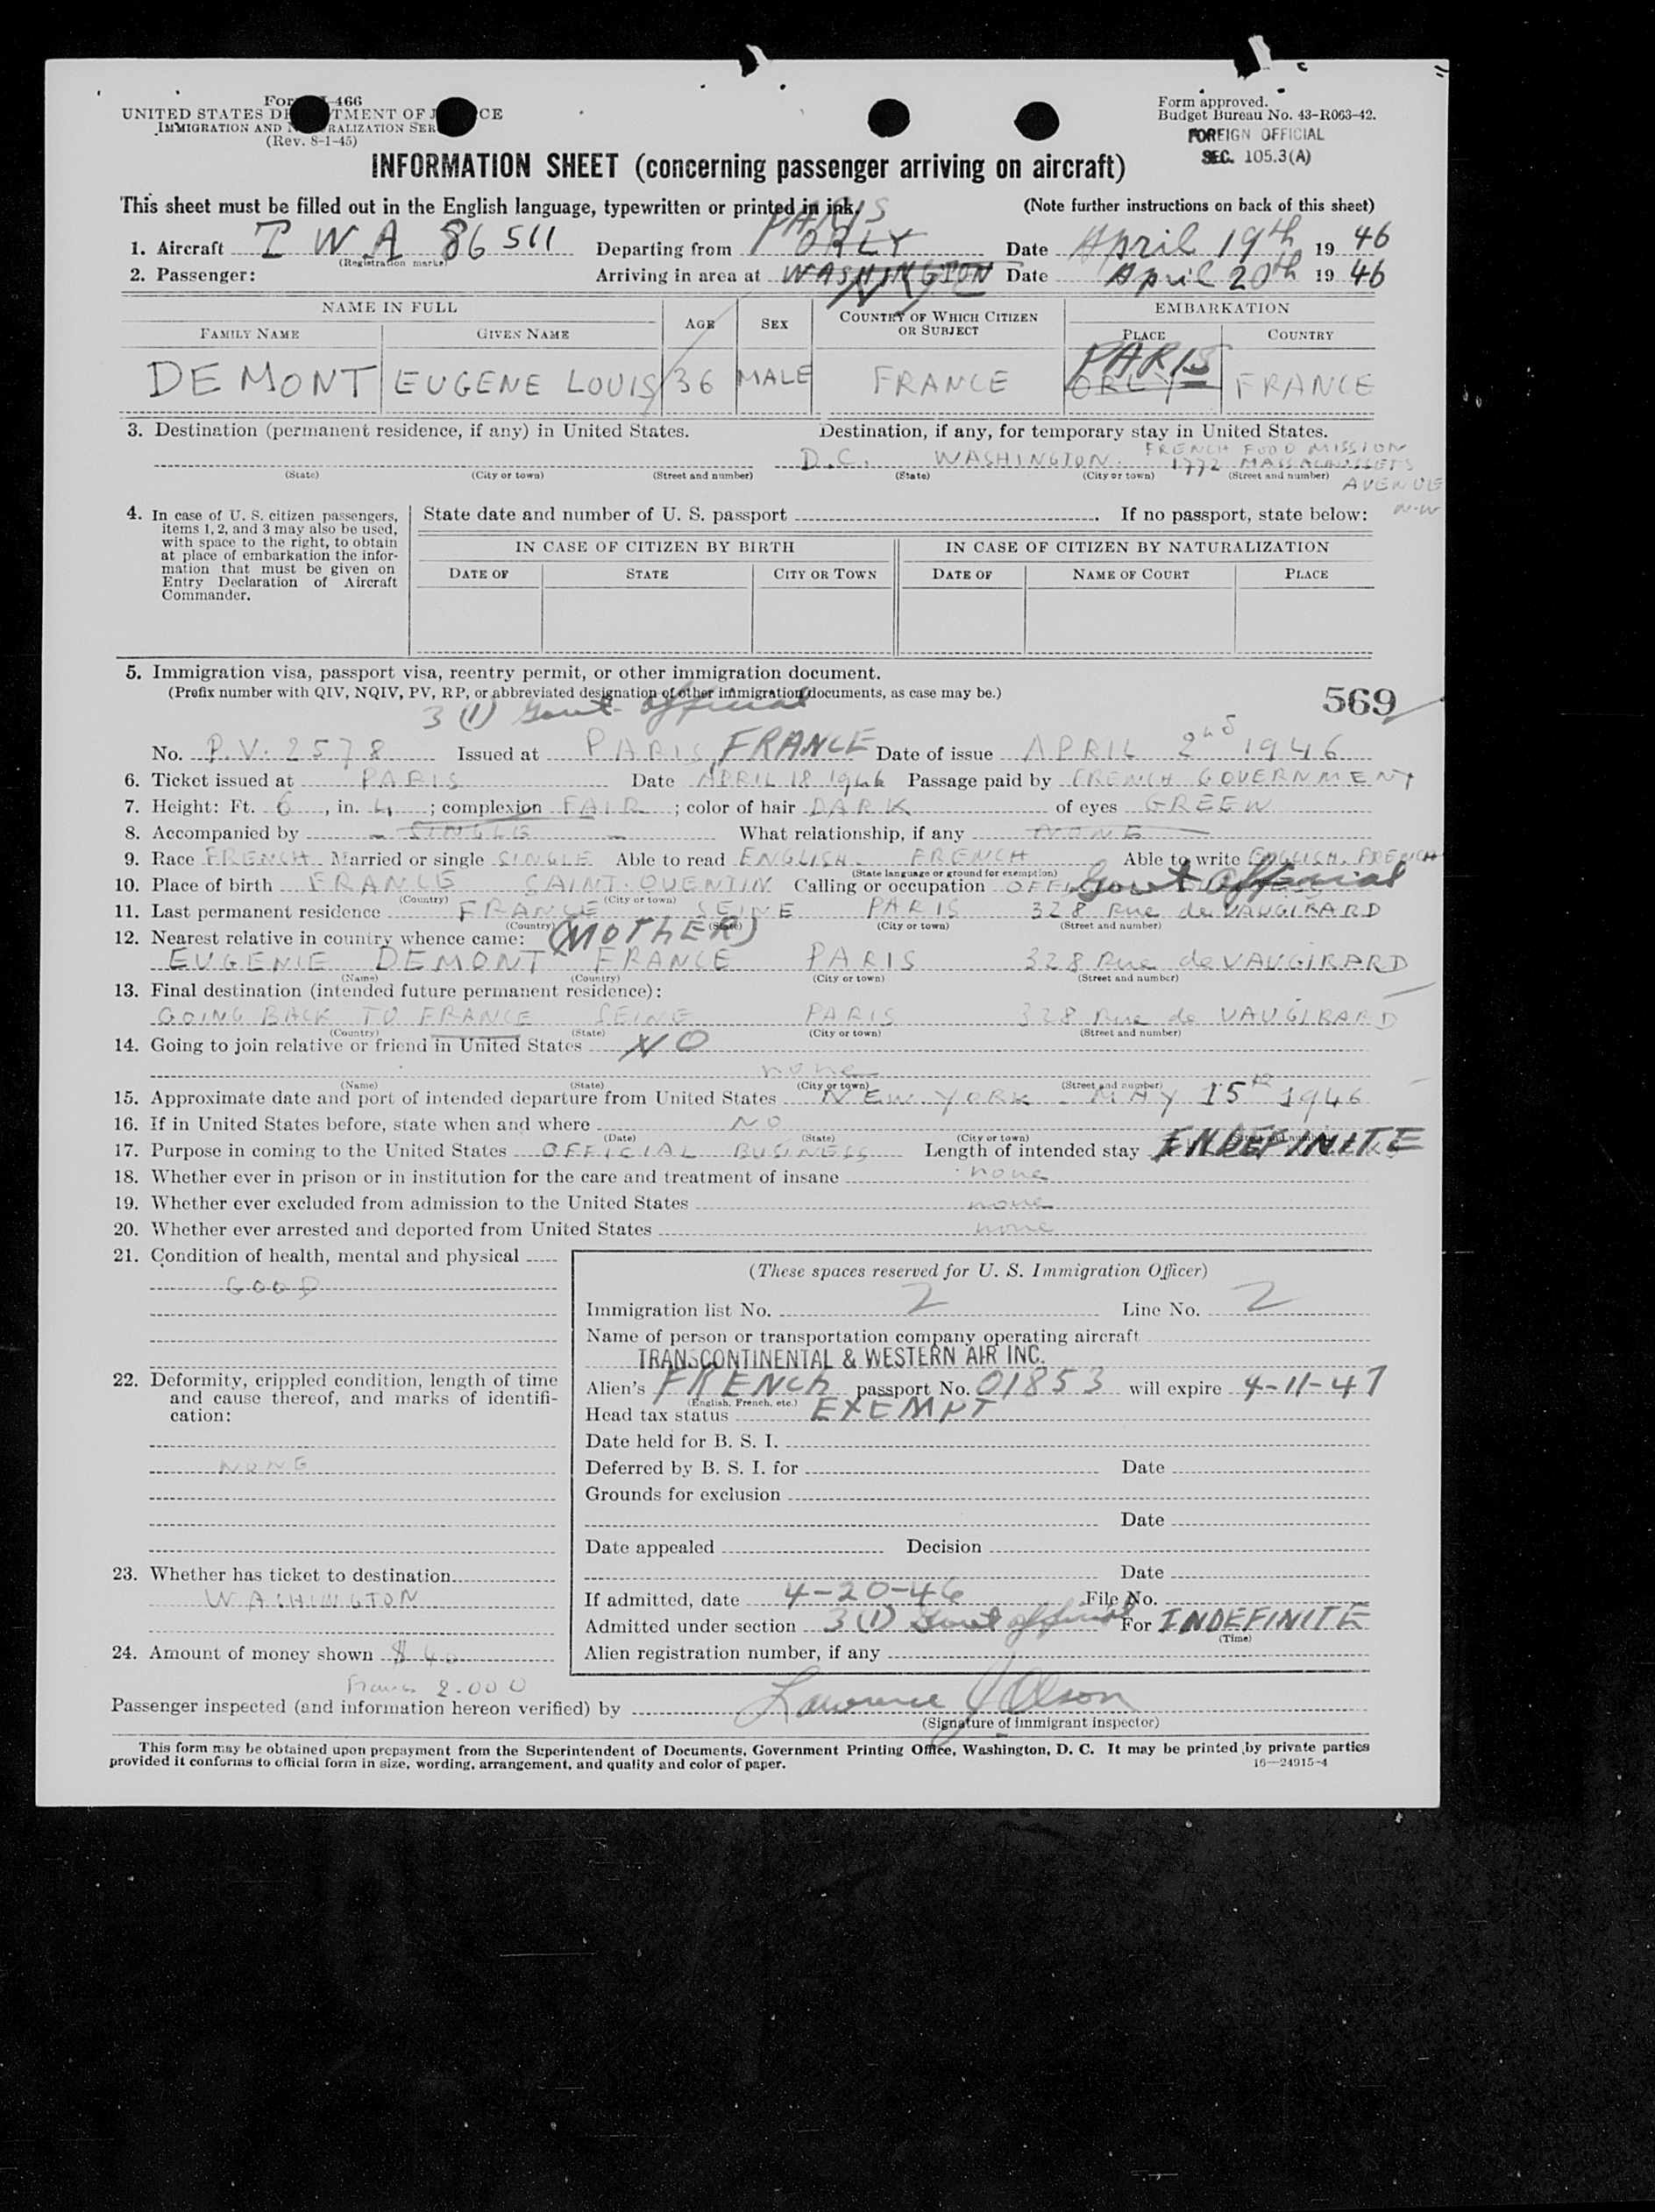 Form I-466
UNITED STATES DEPARTMENT OF JUSTICE
IMMIGRATION AND NATURALIZATION SERVICE
(Rev. 8-1-45)
Form approved.
Budget Bureau No. 43-R063-42.
FOREIGN OFFICIAL
SEC. 105.3(A)
INFORMATION SHEET (concerning passenger arriving on aircraft)
This sheet must be filled out in the English language, typewritten or printed in ink. (Note further instructions on back of this sheet)
PARIS
1. Aircraft TWA 86511 Departing from ORLY Date April 19th 1946
(Registration marks)
2. Passenger: Arriving in area at WASHINGTON Date April 20th 1946
NYC
NAME IN FULL AGE SEX COUNTRY OF WHICH CITIZEN OR SUBJECT EMBARKATION
FAMILY NAME GIVEN NAME PLACE COUNTRY
PARIS
DEMONT EUGENE LOUIS 36 MALE FRANCE ORLY FRANCE
3. Destination (permanent residence, if any) in United States. Destination, if any, for temporary stay in United States.
FRENCH FOOD MISSION
D.C. WASHINGTON. 1772 MASSACHUSSETS
(State) (City or town) (Street and number) (State) (City or town) (Street and number)
AVENUE
N.W
4. In case of U. S. citizen passengers, items 1, 2, and 3 may also be used, with space to the right, to obtain at place of embarkation the information that must be given on Entry Declaration of Aircraft Commander.
State date and number of U. S. passport . If no passport, state below:
IN CASE OF CITIZEN BY BIRTH IN CASE OF CITIZEN BY NATURALIZATION
DATE OF STATE CITY OR TOWN DATE OF NAME OF COURT PLACE
5. Immigration visa, passport visa, reentry permit, or other immigration document.
(Prefix number with QIV, NQIV, PV, RP, or abbreviated designation of other immigration documents, as case may be.)
569
3 (1) Govt official
No. P.V. 2578 Issued at PARIS, FRANCE Date of issue APRIL 2nd 1946
6. Ticket issued at PARIS Date APRIL 18 1946 Passage paid by FRENCH GOVERNMENT
7. Height: Ft. 6, in. 4; complexion FAIR; color of hair DARK of eyes GREEN
8. Accompanied by - SINGLE - What relationship, if any NONE
9. Race FRENCH Married or single SINGLE Able to read ENGLISH. FRENCH Able to write ENGLISH. FRENCH
(State language or ground for exemption)
10. Place of birth FRANCE SAINT. QUENTIN Calling or occupation Govt Official
(Country) (City or town)
11. Last permanent residence FRANCE SEINE PARIS 328 Rue de VAUGIRARD
(Country) (State) (City or town) (Street and number)
12. Nearest relative in country whence came: (MOTHER)
EUGENIE DEMONT FRANCE PARIS 328 Rue de VAUGIRARD
(Name) (Country) (City or town) (Street and number)
13. Final destination (intended future permanent residence):
GOING BACK TO FRANCE SEINE PARIS 328 Rue de VAUGIRARD
(Country) (State) (City or town) (Street and number)
14. Going to join relative or friend in United States NO
none
(Name) (State) (City or town) (Street and number)
15. Approximate date and port of intended departure from United States NEW YORK - MAY 15th 1946
16. If in United States before, state when and where NO
(Date) (State) (City or town) (Street and number)
17. Purpose in coming to the United States OFFICIAL BUSINESS Length of intended stay INDEFINITE
18. Whether ever in prison or in institution for the care and treatment of insane none
19. Whether ever excluded from admission to the United States none
20. Whether ever arrested and deported from United States none
21. Condition of health, mental and physical
GOOD
22. Deformity, crippled condition, length of time and cause thereof, and marks of identification:
NONE
23. Whether has ticket to destination
WASHINGTON
24. Amount of money shown $ 40
Francs 2.000
(These spaces reserved for U. S. Immigration Officer)
Immigration list No. 2 Line No. 2
Name of person or transportation company operating aircraft
TRANSCONTINENTAL & WESTERN AIR INC.
Alien's FRENCH passport No. 01853 will expire 4-11-47
(English, French, etc.)
Head tax status EXEMPT
Date held for B. S. I.
Deferred by B. S. I. for Date
Grounds for exclusion
Date
Date appealed Decision
Date
If admitted, date 4-20-46 File No.
Admitted under section 3 (1) Govt official For INDEFINITE
(Time)
Alien registration number, if any
Passenger inspected (and information hereon verified) by Lawrence J Olson
(Signature of immigrant inspector)
This form may be obtained upon prepayment from the Superintendent of Documents, Government Printing Office, Washington, D. C. It may be printed by private parties
provided it conforms to official form in size, wording, arrangement, and quality and color of paper. 16-24915-4